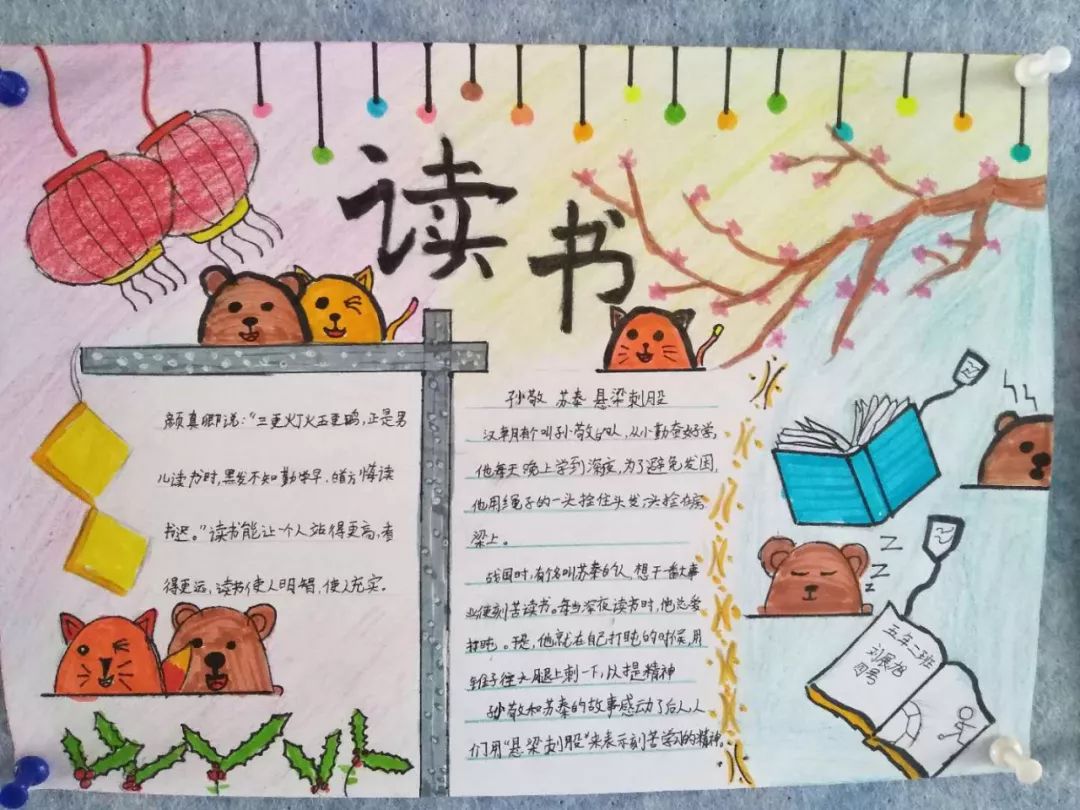 读书
颜真卿说："三更灯火五更鸡,正是男
儿读书时,黑发不知勤学早,白首方悔读
书迟。"读书能让一个人站得更高,看
得更远,读书使人明智,使人充实.
孙敬 苏秦 悬梁刺股
汉朝有个叫孙敬的人,从小勤奋好学,
他每天晚上学到深夜,为了避免发困,
他用绳子的一头拴住头发,一头拴在房
梁上。
战国时,有个名叫苏秦的人,想干一番大事
业便刻苦读书。每当深夜读书时,他总爱
打盹。于是,他就在自己打盹的时候,用
锥子往大腿上刺一下,以提精神
孙敬和苏秦的故事感动了后人,人
们用"悬梁刺股"来表示刻苦学习的精神。
Z
Z
Z
五年二班
刘展旭
四号